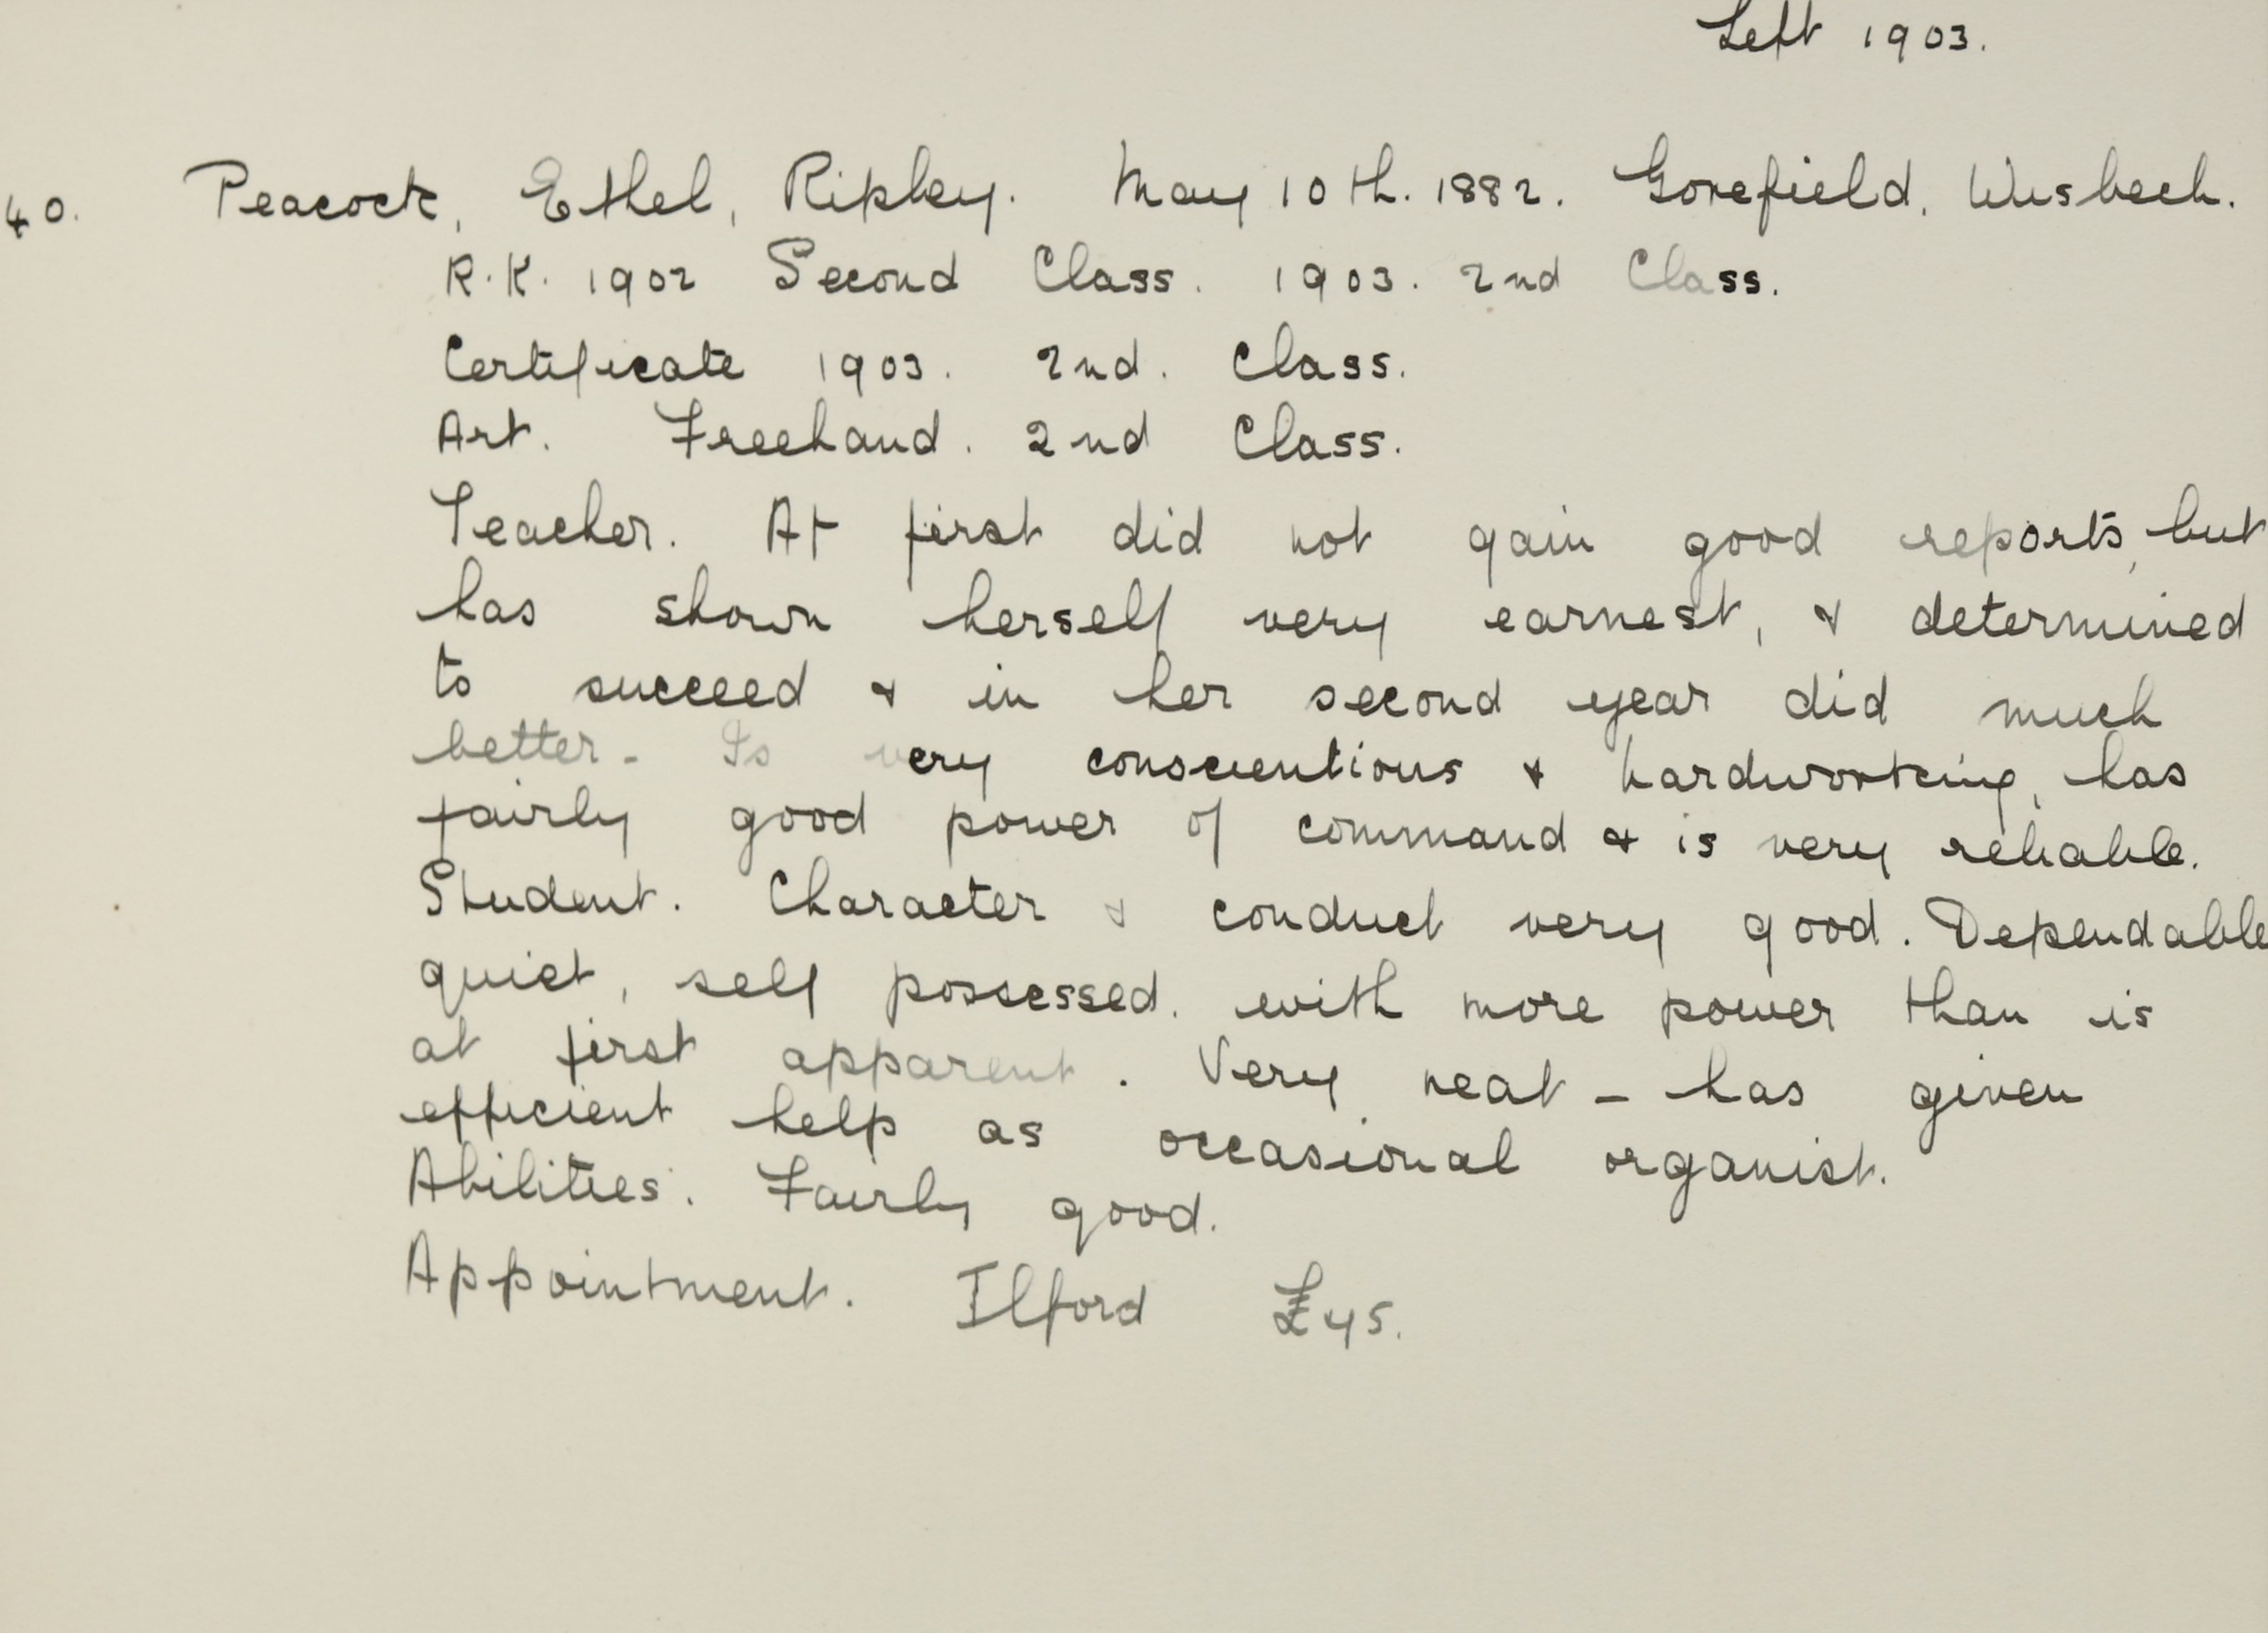 Left 1903.
40. Peacock, Ethel, Ripley. May 10th. 1882. Gorefield, Wisbech.
R.K. 1902 Second Class. 1903. 2nd Class.
Certificate 1903. 2nd. Class.
Art. Freehand. 2nd Class.
Teacher. At first did not gain good reports, but
has shown herself very earnest, & determined
to succeed & in her second year did much
better - Is very conscientious & hardworking, has
fairly good power of command & is very reliable.
Student. Character & conduct very good. Dependable
quiet, self possessed. with more power than is
at first apparent. Very neat - has given
efficient help as occasional organist.
Abilities. Fairly good.
Appointment. Ilford £45.